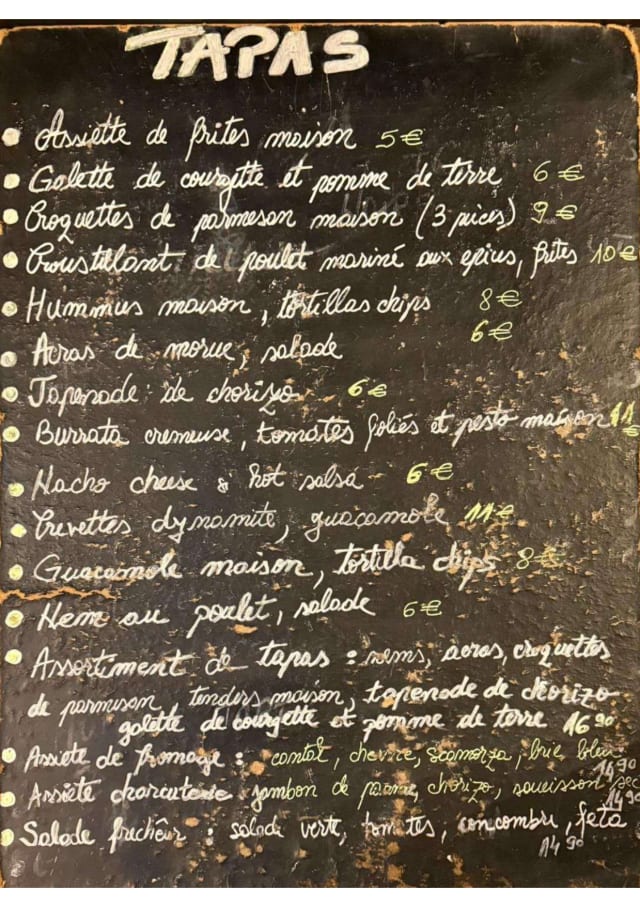 TAPAS
• Assiette de frites maison 5€
• Galette de courgette et pomme de terre 6€
• Croquettes de parmesan maison (3 pièces) 9€
• Croustillant de poulet mariné aux épices, frites 10€
• Hummus maison, tortillas chips 8€
• Acras de morue, salade 6€
• Tapenade de chorizo 6€
• Burrata cremeuse, tomates foliés et pesto maison 11€
• Nacho cheese & hot salsa 6€
• Crevettes dynamite, guacamole 11€
• Guacamole maison, tortilla chips 8€
• Nem au poulet, salade 6€
• Assortiment de tapas : nems, acras, croquettes
de parmesan, tenders maison, tapenade de chorizo
galette de courgette et pomme de terre 16 90
• Assiete de fromage : cantal, chevre, scamorza, brie bleu
14 90
• Assiete charcuterie jambon de parme, chorizo, saucisson sec
14 90
• Salade fraîcheur : salade verte, tomates, concombre, feta
14 90